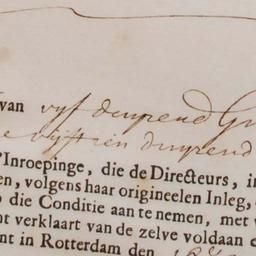 van vyf duysend Gu
e vyftien duysend
Inroepinge, die de Directeurs, i
en, volgens haar origineelen Inleg,
o die Conditie aan te nemen, met
nt verklaart van de zelve voldaan e
nt in Rotterdam den